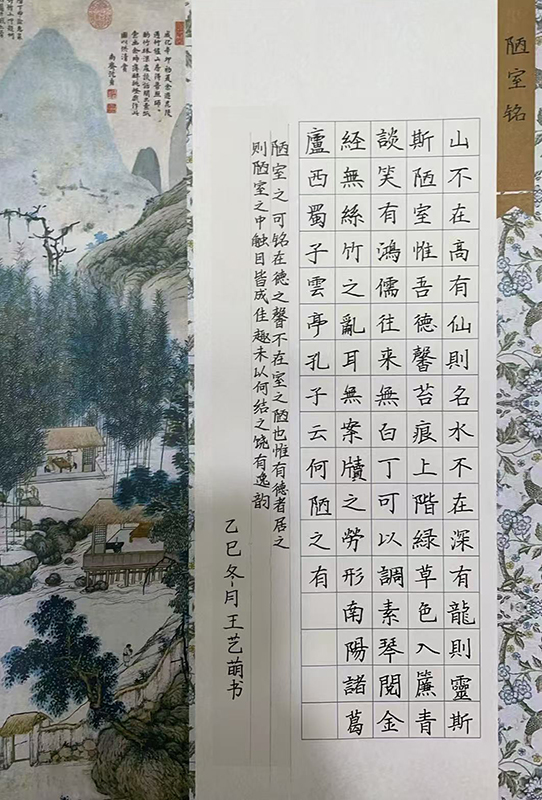 陋室铭
山不在高有仙則名水不在深有龍則靈斯
斯陋室惟吾德馨苔痕上階綠草色入簾青
談笑有鴻儒往来無白丁可以調素琴閱金
經無絲竹之亂耳無案牘之勞形南陽諸葛
廬西蜀子雲亭孔子云何陋之有
陋室之可铭在德之馨不在室之陋也惟有德者居之
则陋室之中触目皆成佳趣末以何结之饶有逸韵
乙巳冬月王艺萌书